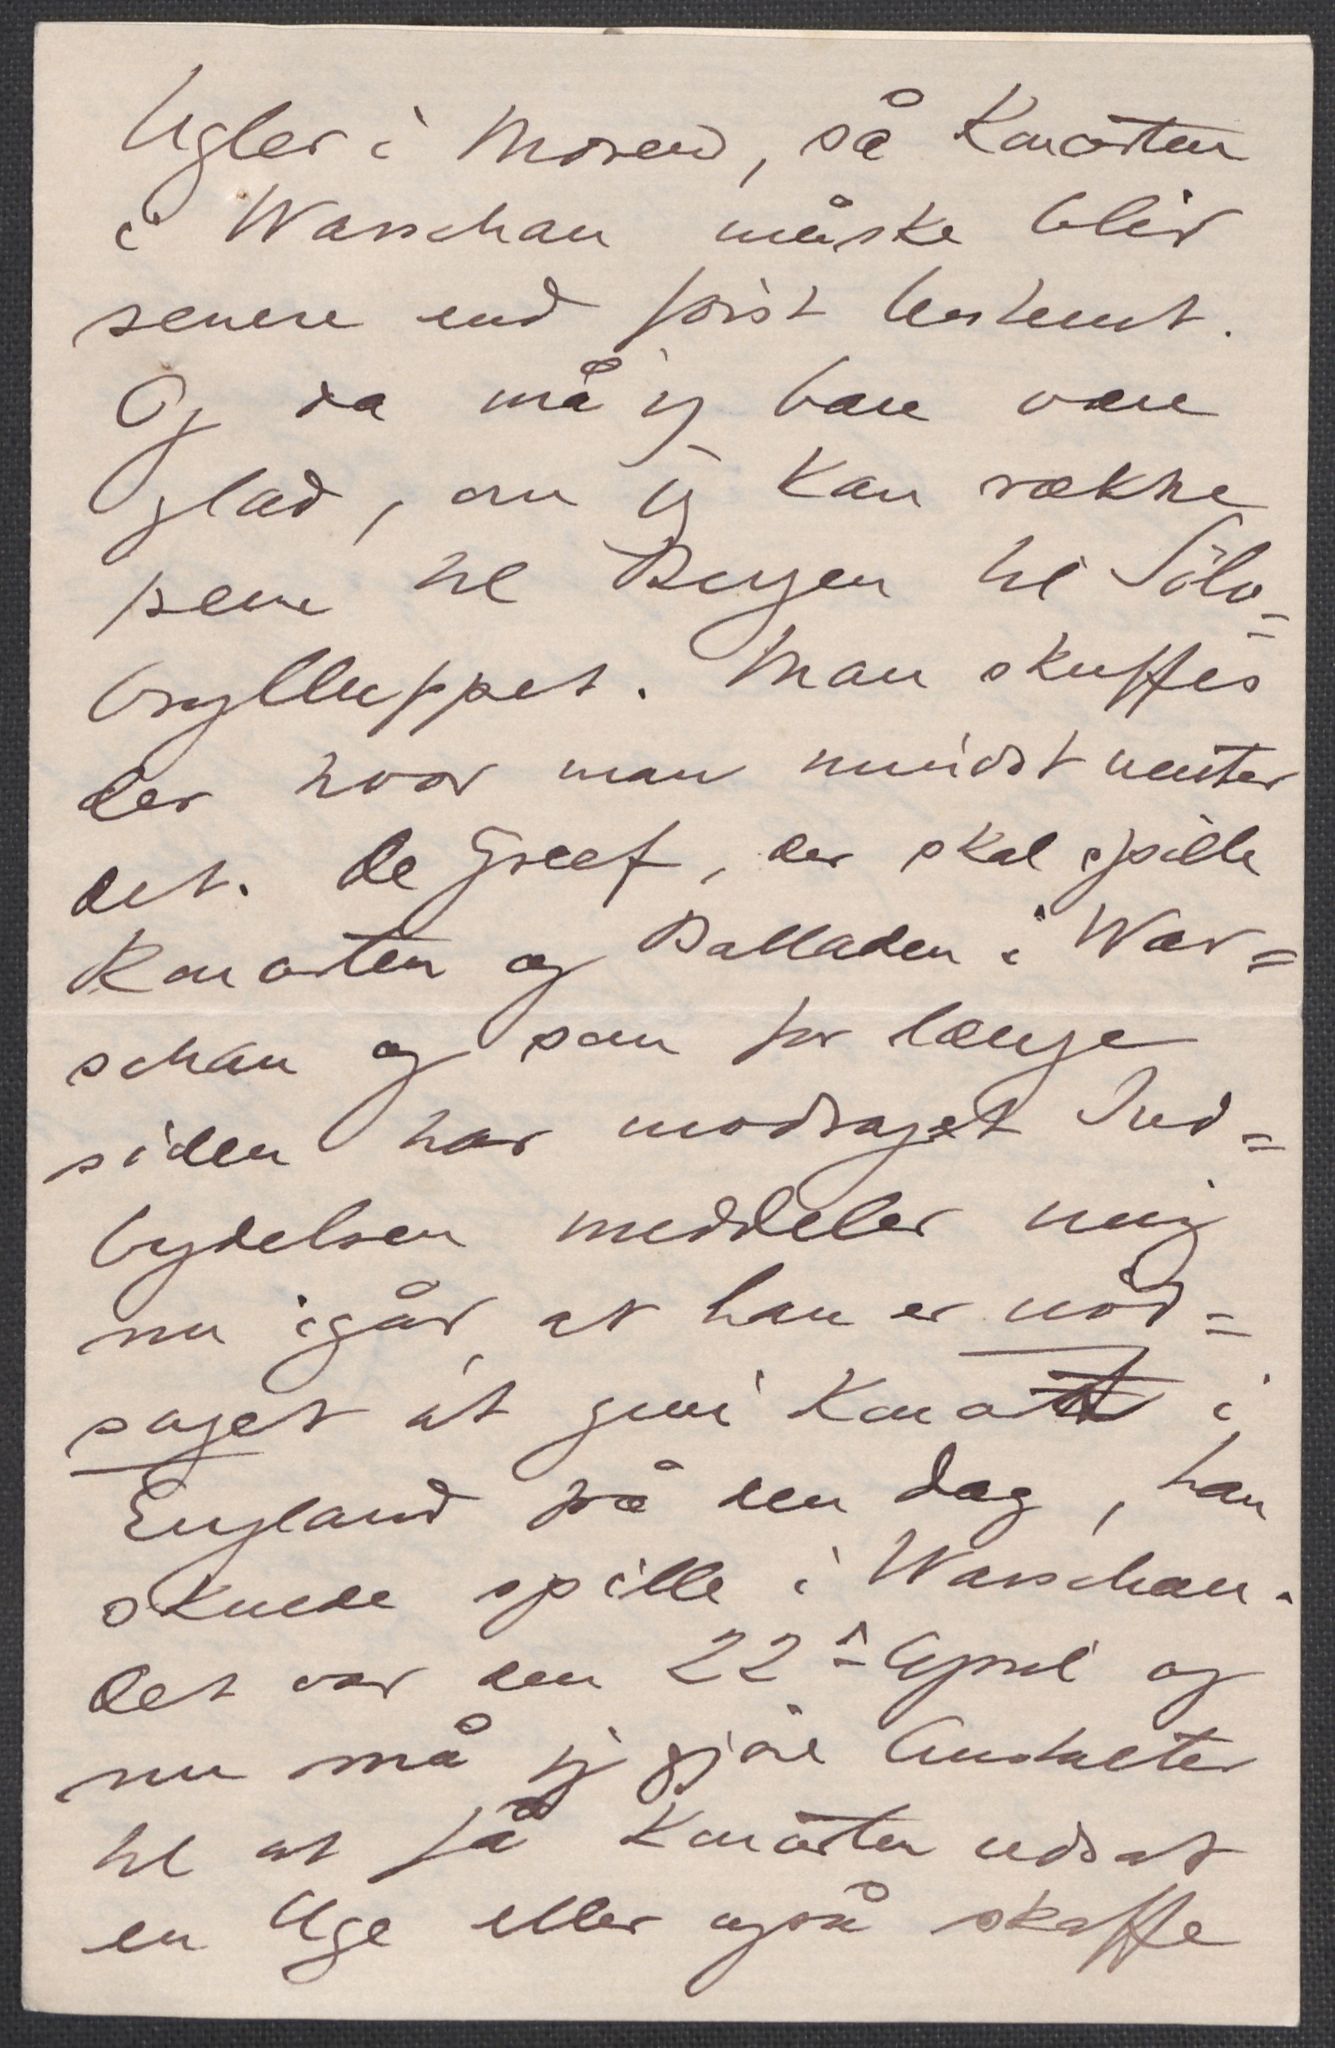 Ugler i Mosen, så Koncerten
i Warschau måske blir
senere end först bestemt.
Og da må jeg bare være
glad, om jeg kan række
frem til Bergen til Sölv=
brylluppet. Man skuffes
der hvor man mindst venter
det. De Greef, der skal spille
Koncerten og Balladen i War=
schau og som for længe
siden har modtaget Ind=
bydelsen meddeler mig
nu igår, at han er nöd=
saget at give Koncert i
England på den Dag, han
skulde spille i Warschau.
Det var den 22 April og
nu må jeg gjöre Anstalter
til at få Koncerten udsat
en Uge eller også skaffe